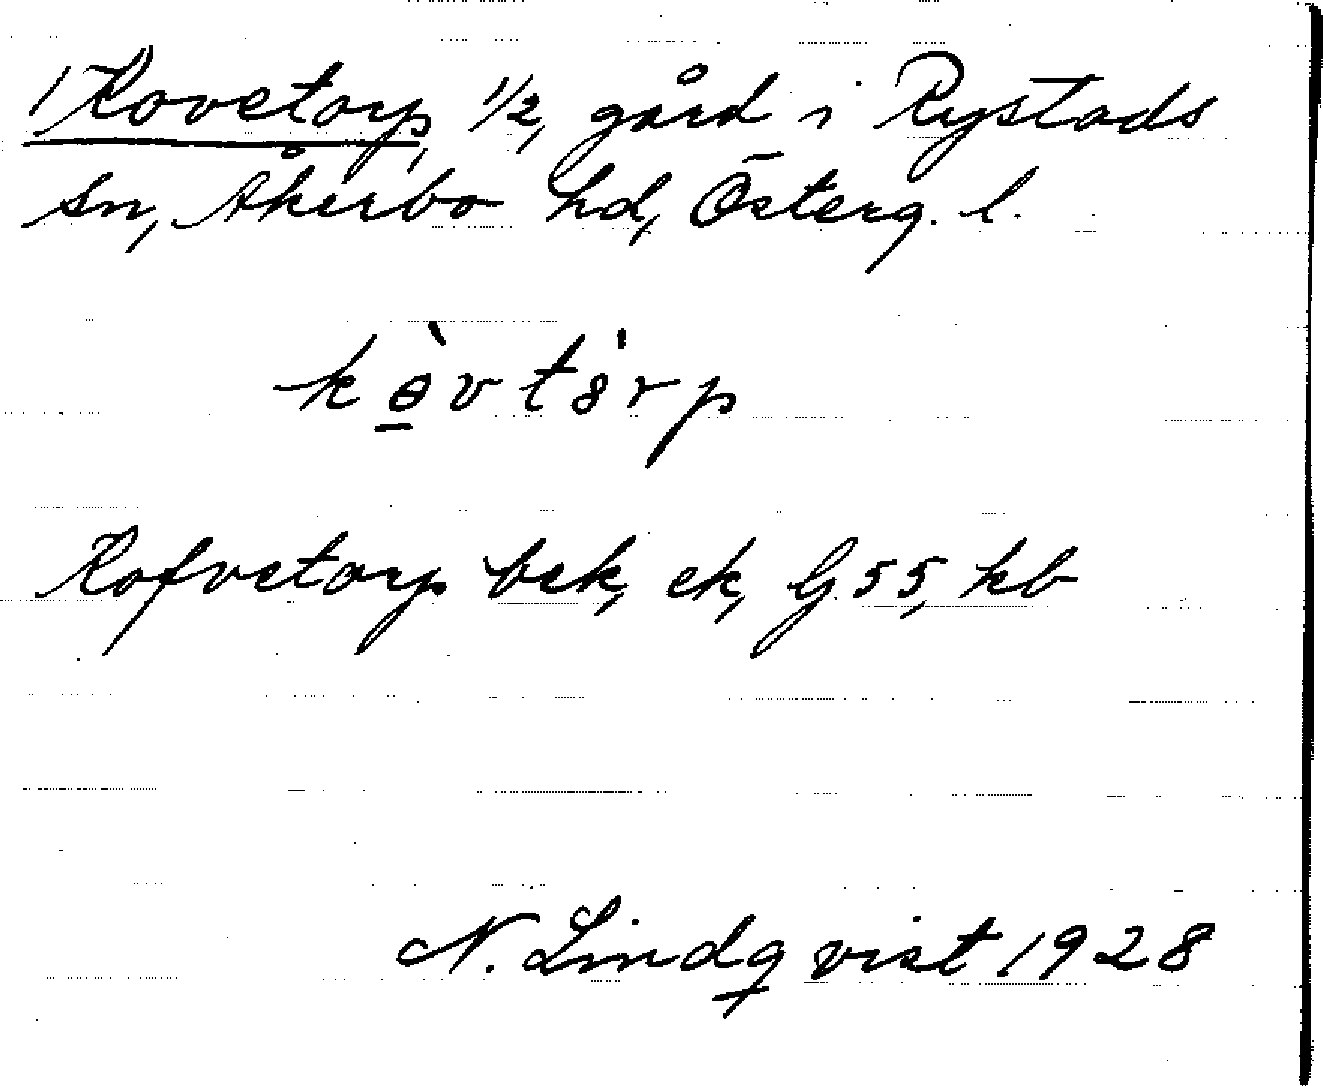 1 Kovetorp, 1/2, gård i Rystads
sn, Åkerbo hd, Österg. l.
kө̲̀vtȯ́rp
Kofvetorp bek, ek, G55, kb
N. Lindqvist 1928